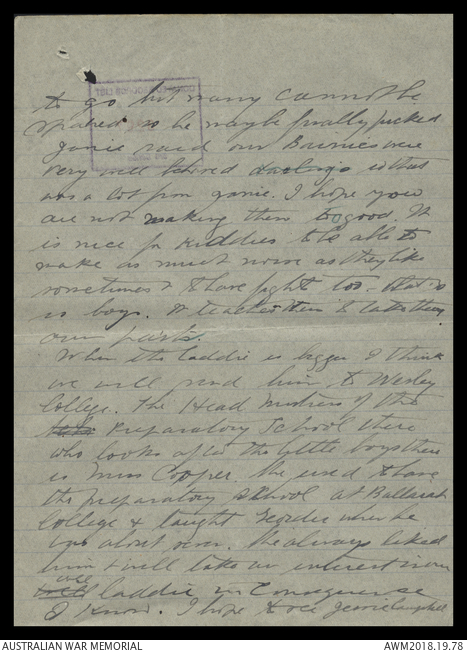 to go, but many cannot be
spared so he may be finally picked
Janie said our Bairnies were
very well behaved darlings & that
was a lot from Janie. I hope you
are not making them too good. It
is nice for kiddies to be able to
make as much noise as they like
sometimes & to have fight too. that is
is boys. It teaches them to take their
own parts.
When the laddie is bigger I think
we will send him to Wesley
College. The Head Mistress of the
Preparatory School there
who looks after the little boys there
is Miss Cooper. She used to have
the preparatory school at Ballarat
College & taught Geordie when he
was about seven. She always liked
him & will take an interest in our
wee
laddie in consequence
I know. I hope to see Jennie Campbell
AUSTRALIAN WAR MEMORIAL
AWM2018.19.78